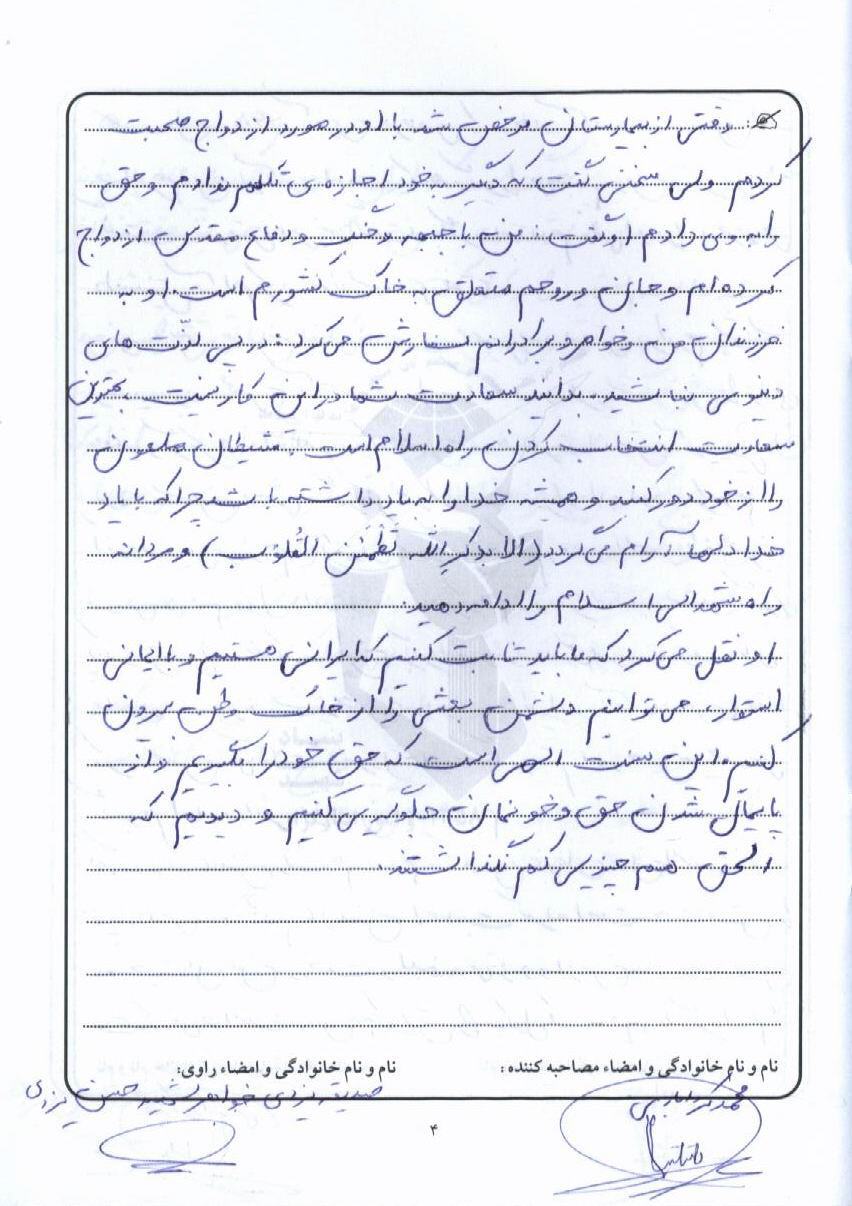 وقتی از بیمارستان مرخص شد با او در مورد ازدواج صحبت
کردم ولی سخنی گفت که دیگر به خود اجازه‌ی تکلم ندادم و حق
را به وی دادم او گفت: من با جبهه و جنگ و دفاع مقدس ازدواج
کرده ام و جان و روحم متعلق به خاک کشورم است. او به
فرزندان من و خواهر و برادرانم سفارش می‌کرد: در پی لذّت های
دنیوی نباشید، بدانید سعادت شما در این کار نیست بهترین
سعادت انتخاب کردن راه اسلام است، شیطان ملعون
را از خود دور کنید و همیشه خدا را به یاد داشته باشید چرا که با یاد
خدا دلها آرام می گردد (الا بذکر الله تَطْمَئِن القُلوب) و مردانه
راه شهدای اسلام را ادامه دهید.
او نقل می‌کرد که ما باید ثابت کنیم که ایرانی هستیم و با ایمانی
استوار، می توانیم دشمن بعثی را از خاک وطن بیرون
کنیم، این سنت الهی است که حق خود را بگیریم و از
پایمال شدن حق و خونمان جلوگیری کنیم و دیدیم که
الحق هم چیزی کم نگذاشتند.
نام و نام خانوادگی و امضاء مصاحبه کننده: نام و نام خانوادگی و امضاء راوی:
محمد صدیقه یزدی خواهر شهید حسین یزدی
۴